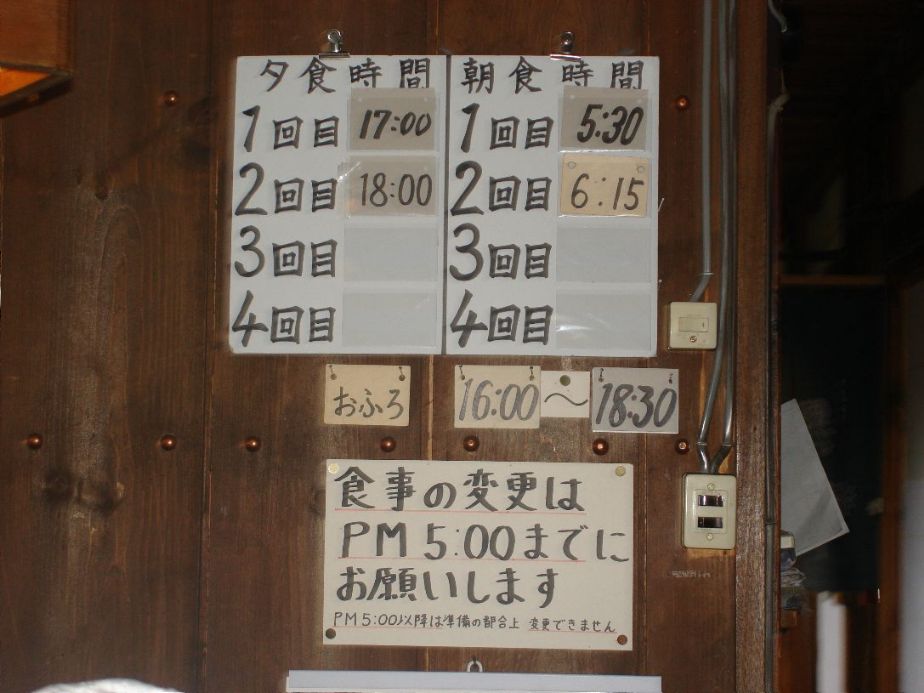 夕食時間
1回目 17:00
2回目 18:00
3回目
4回目
朝食時間
1回目 5:30
2回目 6:15
3回目
4回目
おふろ 16:00 〜 18:30
食事の変更は
PM 5:00までに
お願いします
PM5:00以降は準備の都合上 変更できません